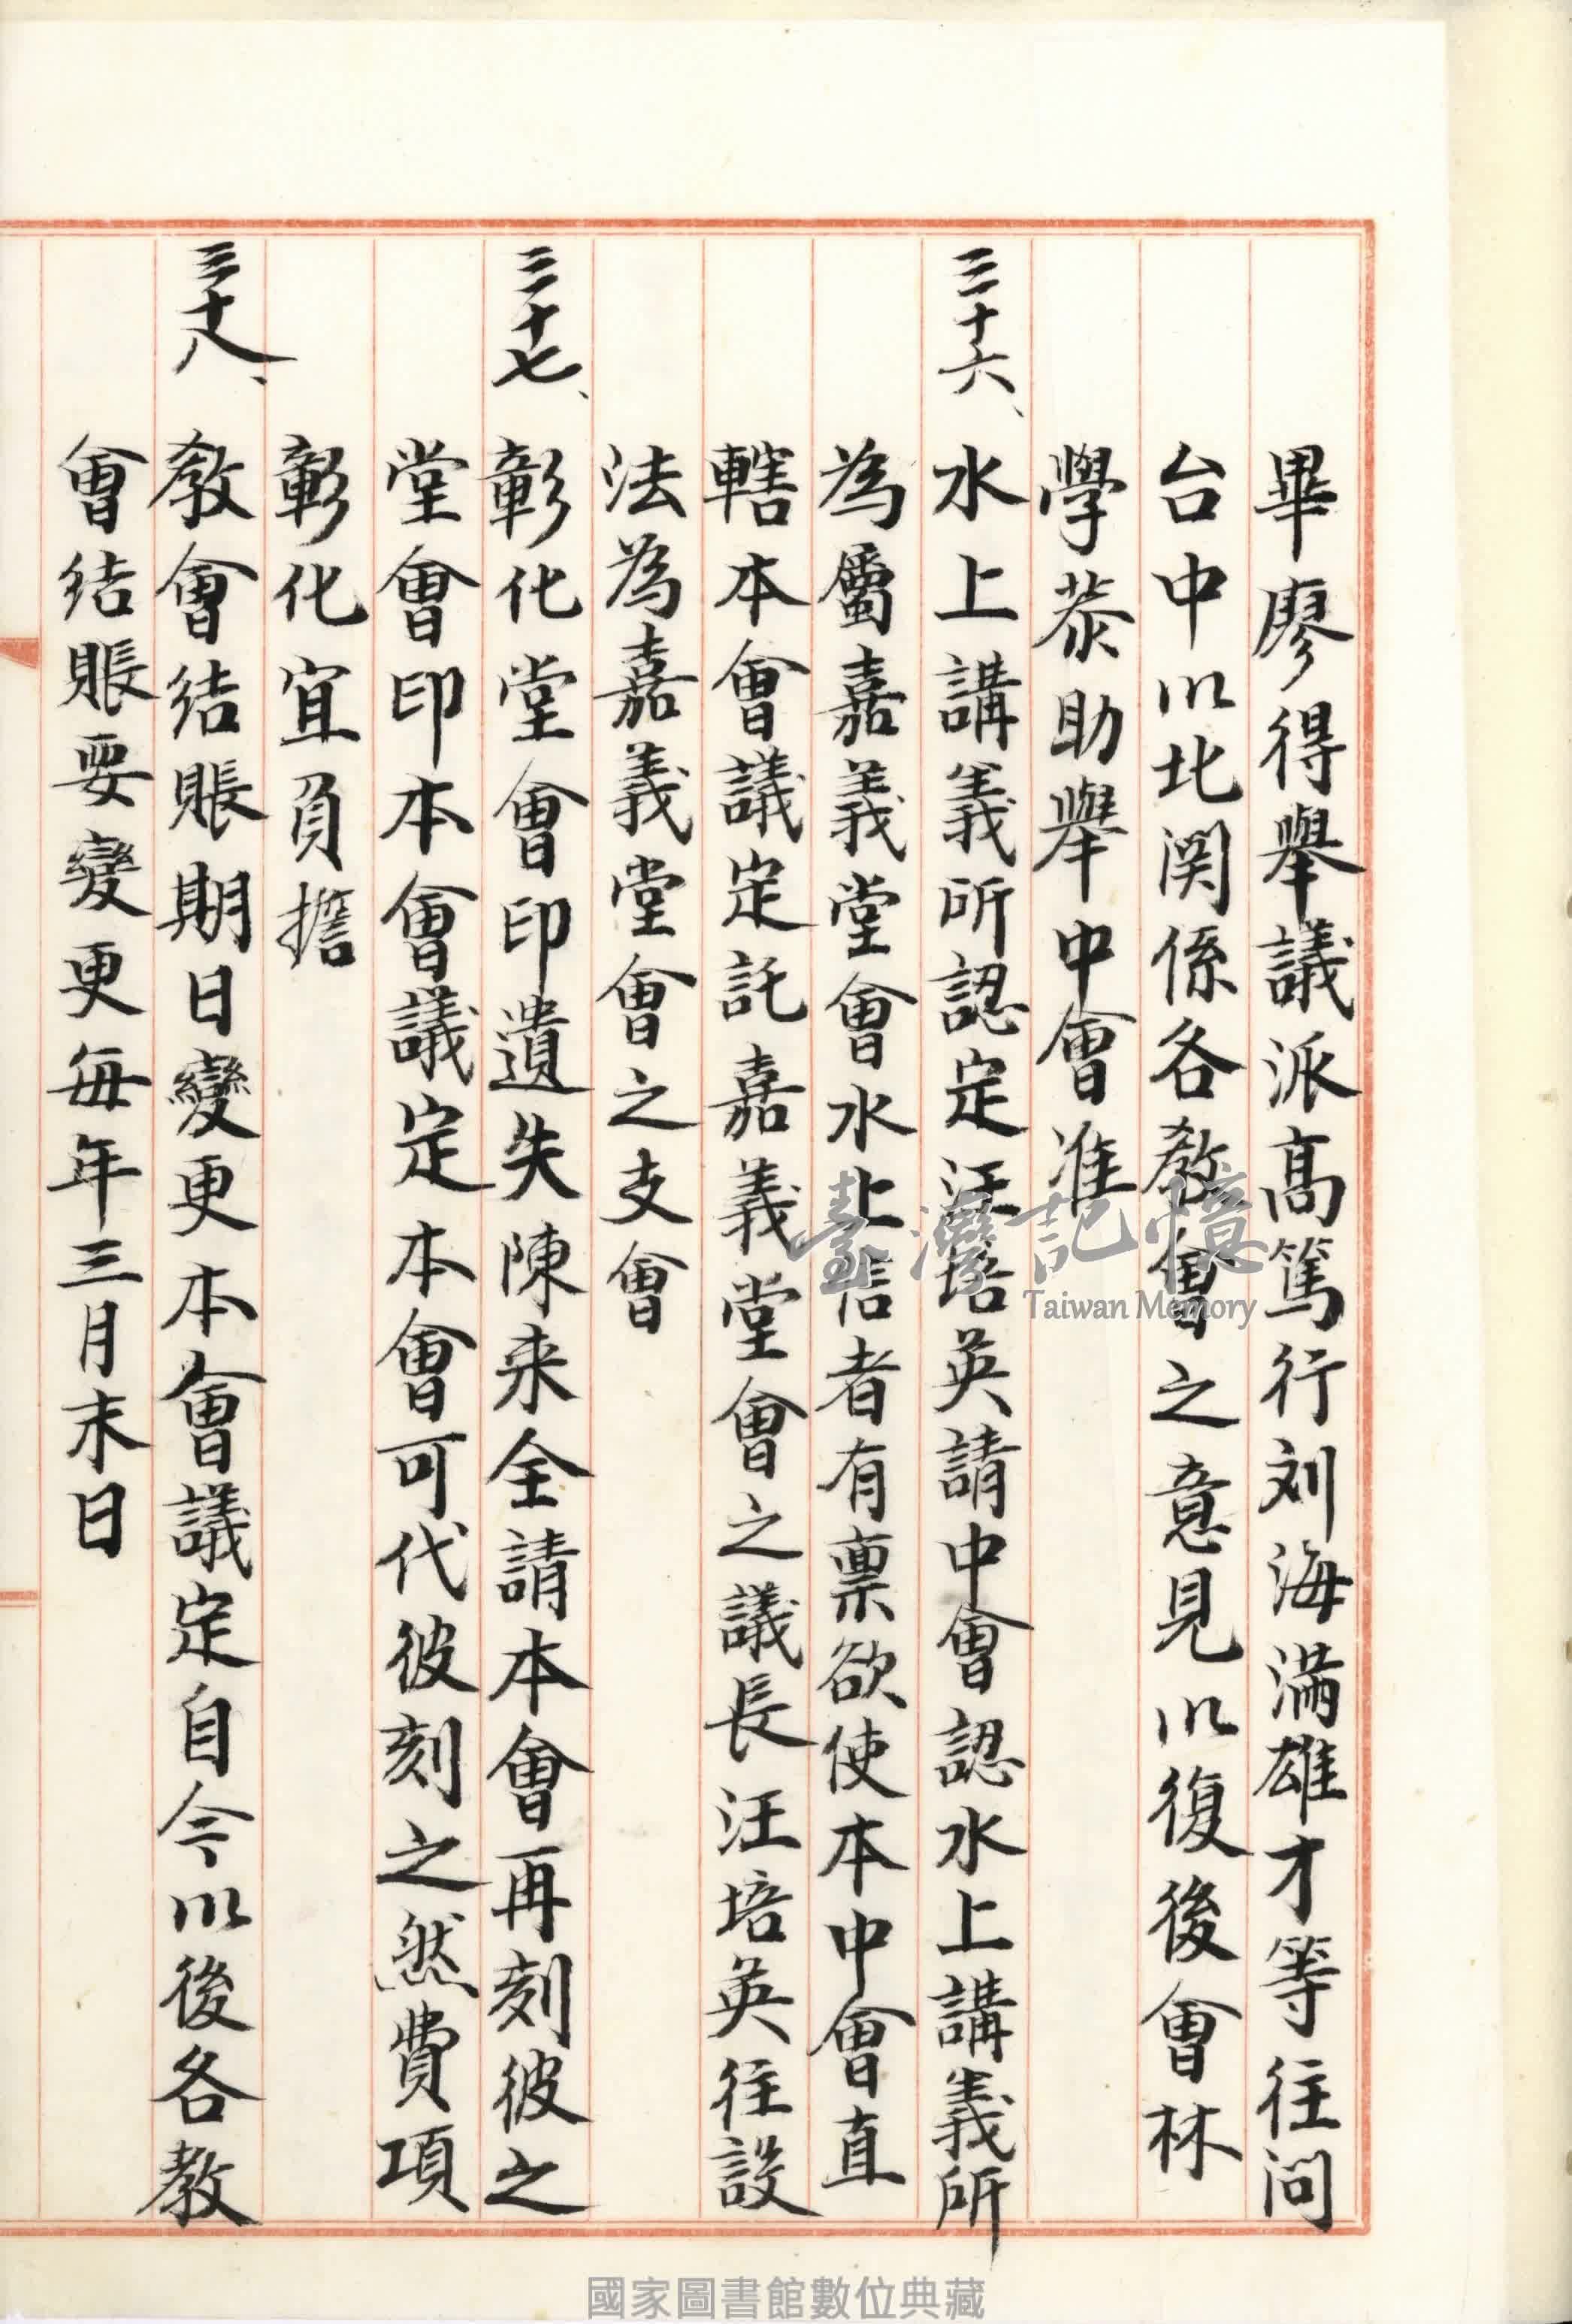 畢廖得舉議派高篤行刘海滿雄才等往問
台中以北関係各教會之意見以復後會林
學恭助舉中會准
三十六、水上講義所認定汪培英請中會認水上講義所
為屬嘉義堂會水上信者有禀欲使本中會直
轄本會議定託嘉義堂會之議長汪培英往設
法為嘉義堂會之支會
三十七、彰化堂會印遺失陳来全請本會再刻彼之
堂會印本會議定本會可代彼刻之然費項
彰化宜負擔
三十八、教會結賬期日變更本會議定自今以後各教
會结賬要變更每年三月末日
臺灣記憶
Taiwan Memory
國家圖書館數位典藏